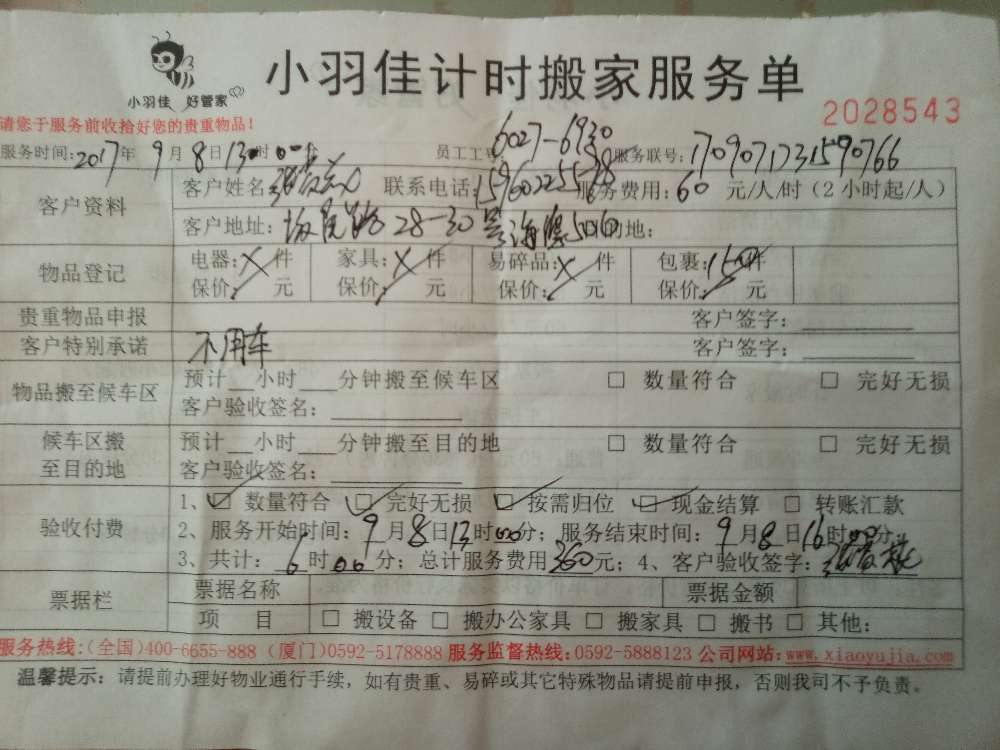 小羽佳 好管家
小羽佳计时搬家服务单
2028543
请您于服务前收拾好您的贵重物品！
服务时间：2017年9月8日13时00分 员工工号：6027-6930 服务联号：1709071731590766
客户资料 客户姓名： 联系电话： 服务费用：60元/人/时（2小时起/人）
客户地址： 28-30号 目的地：
物品登记 电器：×件 家具：×件 易碎品：×件 包裹：件
保价：元 保价：元 保价：元 保价：元
贵重物品申报 客户签字：
客户特别承诺 不用车 客户签字：
物品搬至候车区 预计 小时 分钟搬至候车区 □ 数量符合 □ 完好无损
客户验收签名：
候车区搬至目的地 预计 小时 分钟搬至目的地 □ 数量符合 □ 完好无损
客户验收签名：
验收付费 1、☑ 数量符合 ☑ 完好无损 ☑ 按需归位 ☑ 现金结算 □ 转账汇款
2、服务开始时间：9月8日13时00分；服务结束时间：9月8日16时00分；
3、共计：6时00分；总计服务费用360元；4、客户验收签字：
票据栏 票据名称 票据金额
项目 □ 搬设备 □ 搬办公家具 □ 搬家具 □ 搬书 □ 其他：
服务热线：(全国)400-6655-888 (厦门)0592-5178888 服务监督热线：0592-5888123 公司网站：www.xiaoyujia.com
温馨提示：请提前办理好物业通行手续，如有贵重、易碎或其它特殊物品请提前申报，否则我司不予负责。